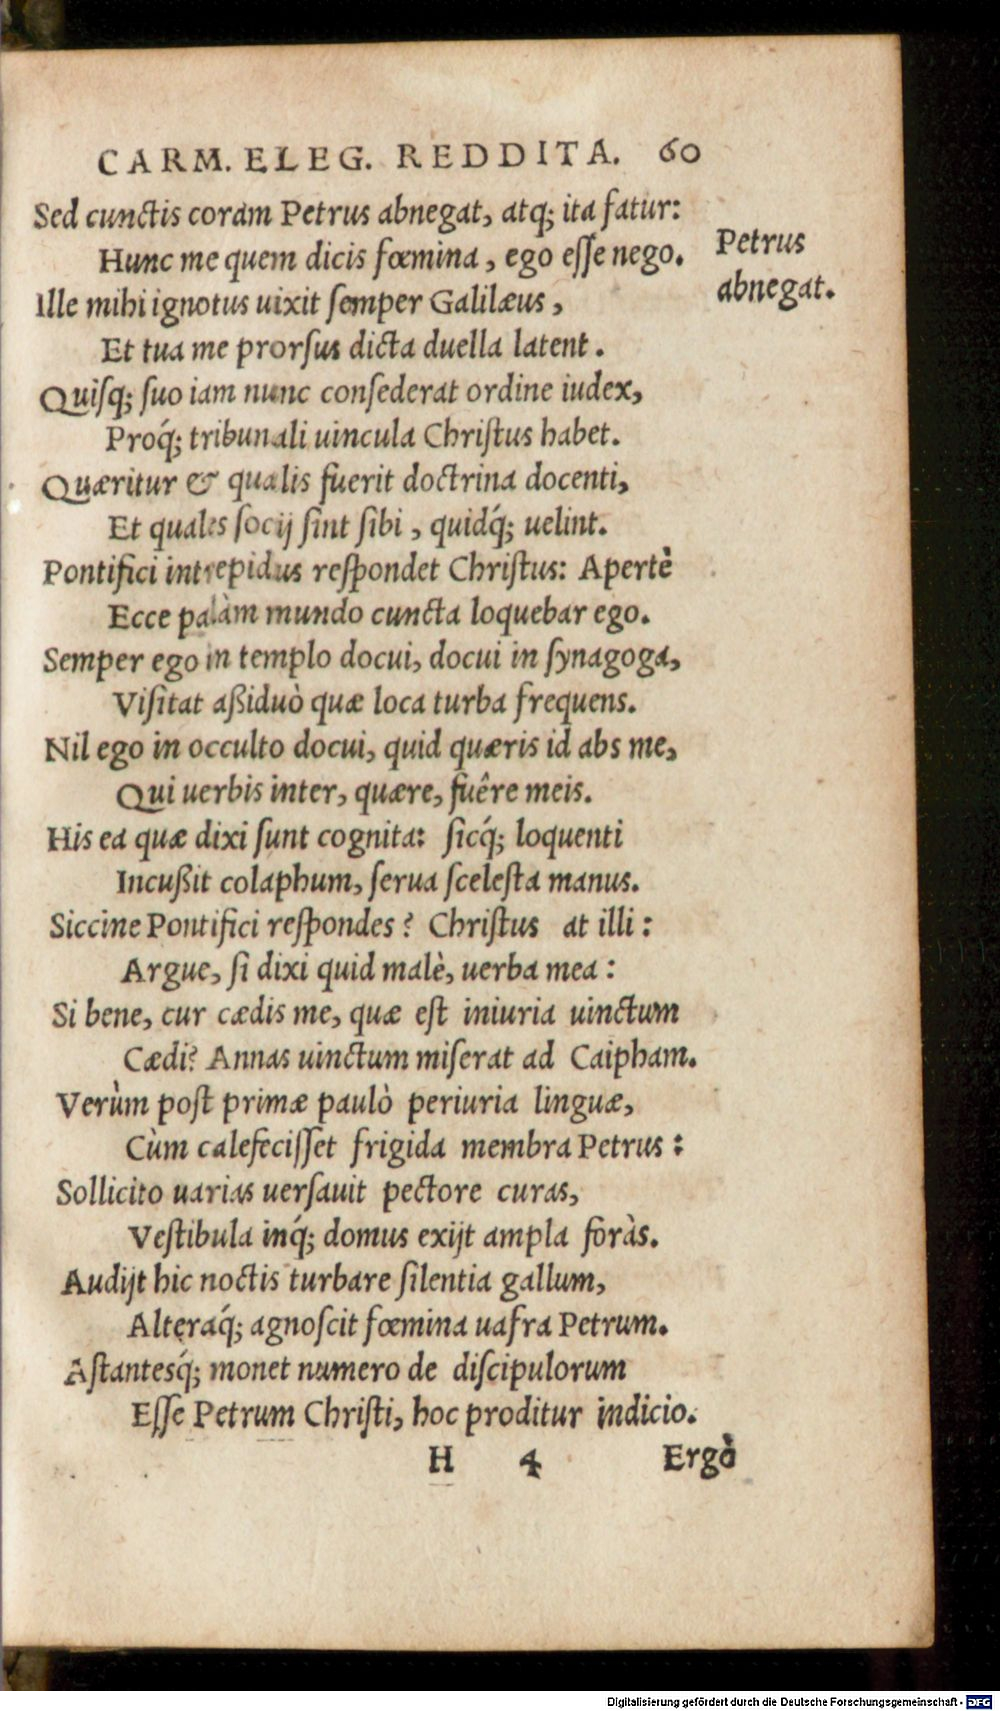 CARM. ELEG. REDDITA. 60
Sed cunctis coram Petrus abnegat, atq; ita fatur:
Hunc me quem dicis fœmina, ego esse nego.
Petrus
abnegat.
Ille mihi ignotus uixit semper Galilæus,
Et tua me prorsus dicta duella latent.
Quisq; suo iam nunc consederat ordine iudex,
Proq́; tribunali uincula Christus habet.
Quæritur & qualis fuerit doctrina docenti,
Et quales socij sint sibi, quidq́; uelint.
Pontifici intrepidus respondet Christus: Apertè
Ecce palàm mundo cuncta loquebar ego.
Semper ego in templo docui, docui in synagoga,
Visitat aßiduò quæ loca turba frequens.
Nil ego in occulto docui, quid quæris id abs me,
Qui uerbis inter, quære, fuêre meis.
His ea quæ dixi sunt cognita: sicq́; loquenti
Incußit colaphum, serua scelesta manus.
Siccine Pontifici respondes? Christus at illi:
Argue, si dixi quid malè, uerba mea:
Si bene, cur cædis me, quæ est iniuria uinctum
Cædi? Annas uinctum miserat ad Caipham.
Verùm post primæ paulò periuria linguæ,
Cùm calefecisset frigida membra Petrus:
Sollicito uarias uersauit pectore curas,
Vestibula inq́; domus exijt ampla foràs.
Audijt hic noctis turbare silentia gallum,
Alteraq́; agnoscit fœmina uafra Petrum.
Astantesq́; monet numero de discipulorum
Esse Petrum Christi, hoc proditur indicio.
H 4 Ergò
Digitalisierung gefördert durch die Deutsche Forschungsgemeinschaft - DFG